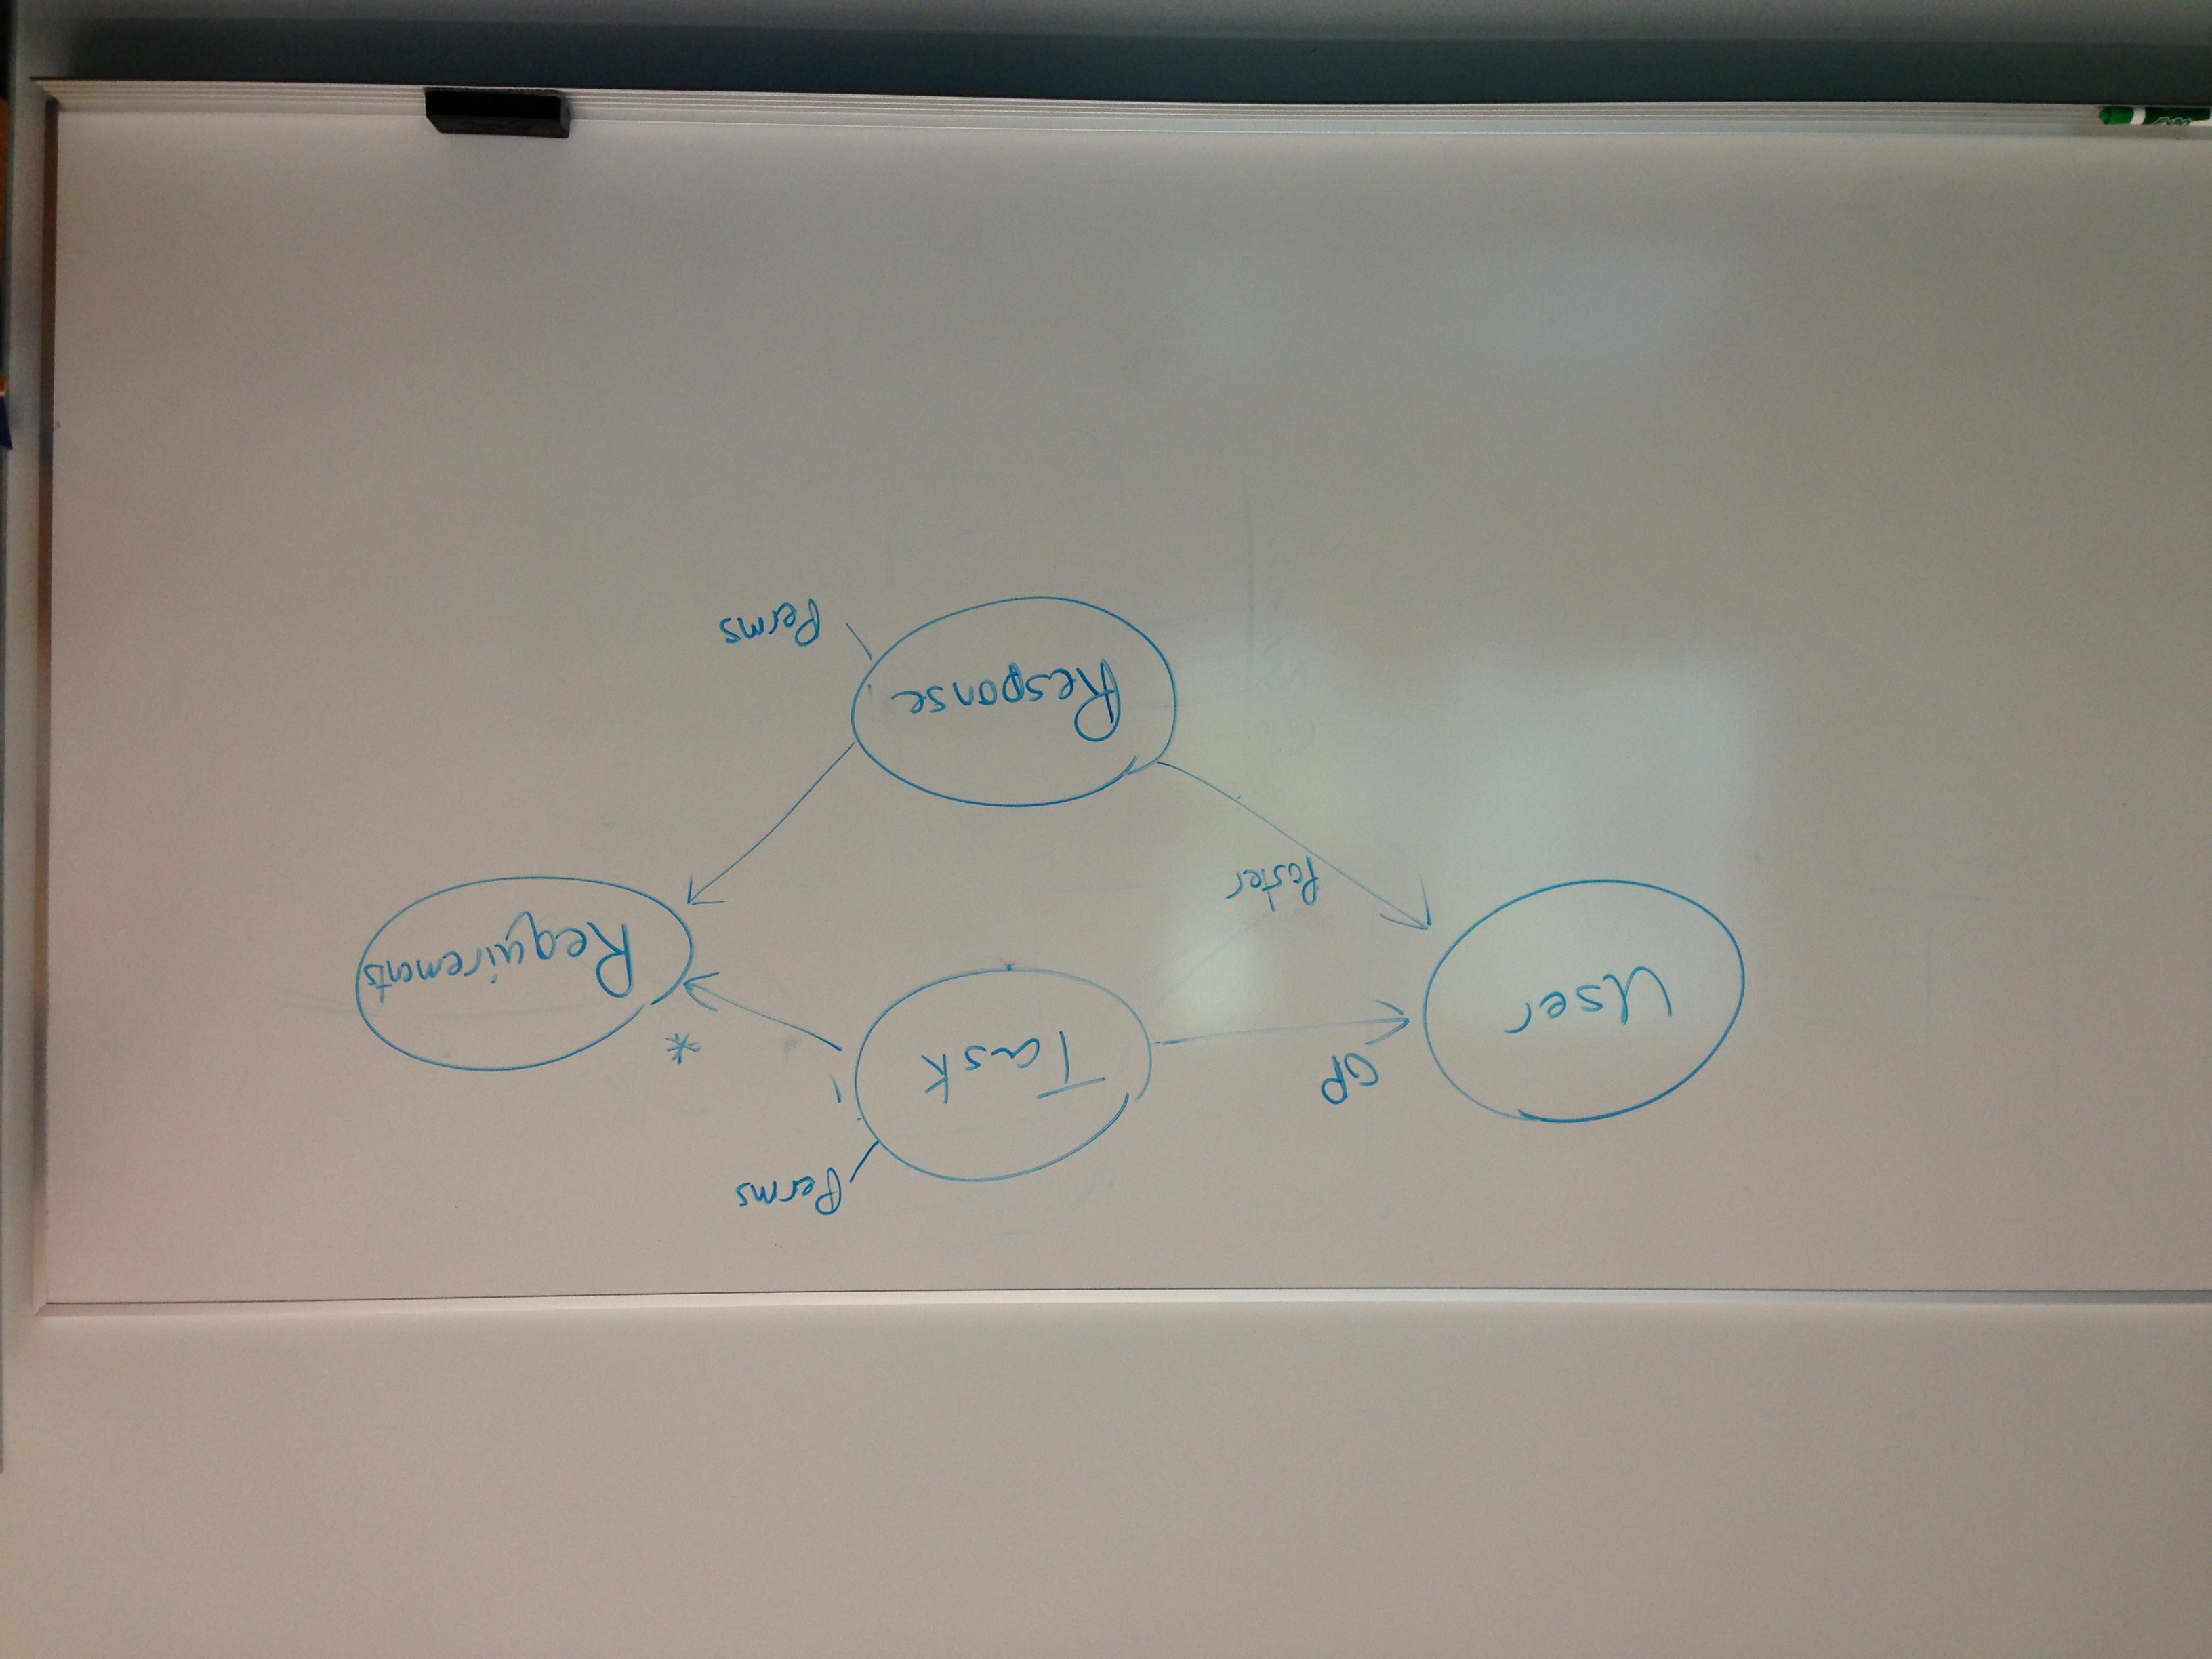 Perms
OP
Task
1
*
User
Requirements
Poster
Response
Perms